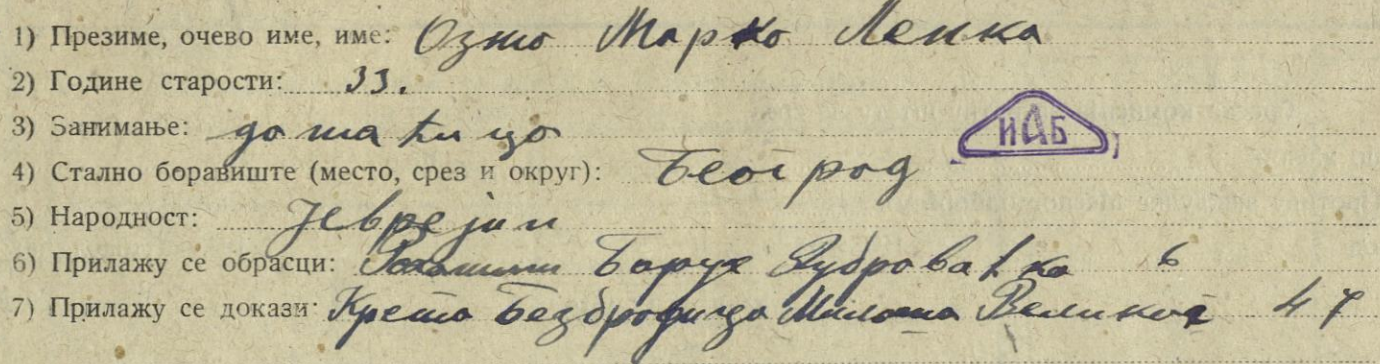 1) Презиме, очево име, име: Озмо Марко Ленка
2) Године старости: 33.
3) Занимање: домаћица
4) Стално боравиште (место, срез и округ): Београд
ИАБ
5) Народност: Јеврејин
6) Прилажу се обрасци: Барух Дубровачка 6
7) Прилажу се докази: Милоша Великог 47